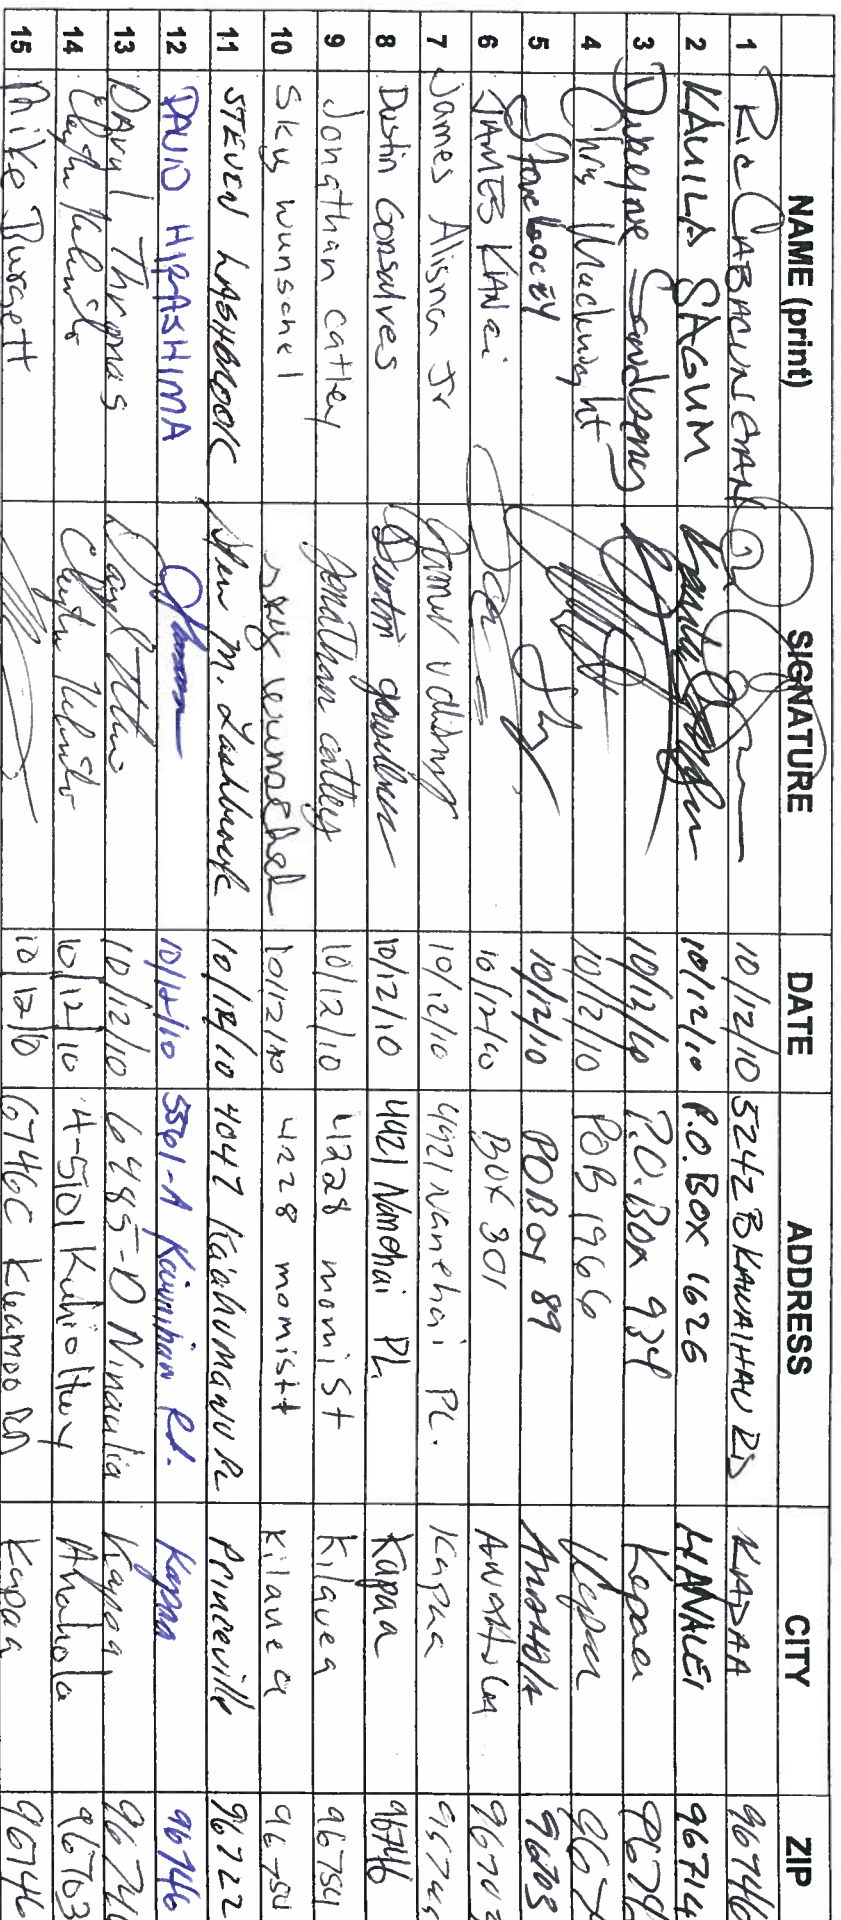 NAME (print) SIGNATURE DATE ADDRESS CITY ZIP
1 Ric CABACUNGAN 10/12/10 5242 B KAWAIHAU RD KAPAA 96746
2 KAUILA SAGUM 10/12/10 P.O. BOX 1626 HANALEI 96714
3 10/12/10 P.O. BOX 934 Kapaa
4 Chris 10/12/10 POB 1966 Kapaa
5 Steve 10/12/10 PO Box 89 Anahola 96703
6 JAMES KANei 10/12/10 BOX 301 96703
7 James Alisna Jr 10/12/10 4421 Nanehai PL. Kapaa
8 Dustin Gonsalves Dustin gonsalves 10/12/10 4421 Nanehai PL. Kapaa 96746
9 Jonathan Catley Jonathan catley 10/12/10 4228 momi St Kilauea 96754
10 Sky wunschel sky wunschel 10/12/10 4228 momi st Kilauea 96754
11 STEVEN LASHBROOK M. Lashbrook 10/12/10 4047 Kaahumanu PL Princeville 96722
12 DAVID HIRASHIMA 10/12/10 5561-A Kawaihau Rd. Kapaa 96746
13 Daryl Thromas Daryl 10/12/10 6485-D Kapaa
14 10/12/10 4-5101 Kuhio Hwy Anahola 96703
15 Mike Burgett 10/12/10 6746C Kuamoo RD Kapaa 96746